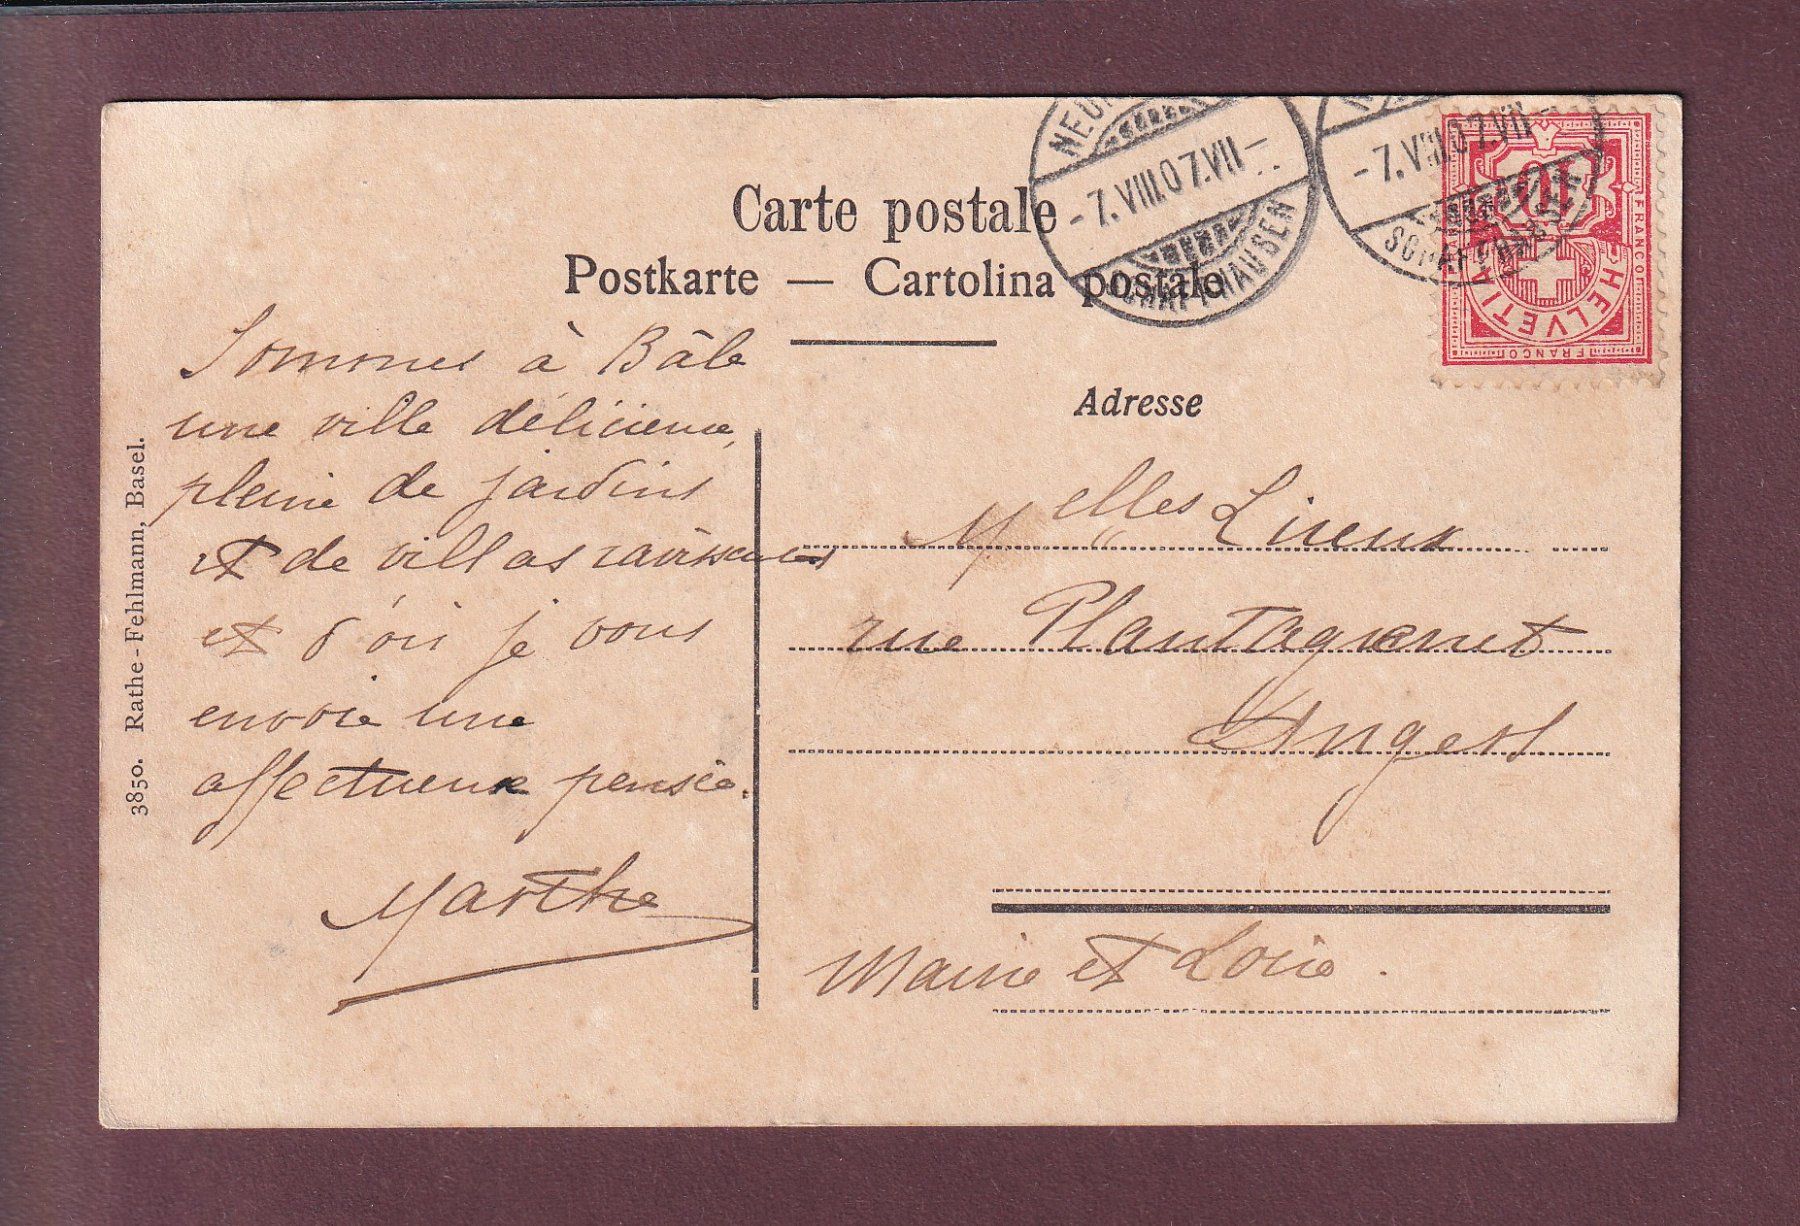 Carte postale
Postkarte — Cartolina postale
Adresse
3850. Rathe-Fehlmann, Basel.
Sommes à Bâle
une ville délicieuse,
pleine de jardins
et de villas ravissantes
et d'où je vous
envoie une
affectueuse pensée.
Marthe
Melles Lireux
rue Plantagenet
Angers
Maine et Loire.
-7.VIII.07.VII-
SCHAFFHAUSEN
-7.VIII.07.VII-
SCHAFFHAUSEN
10
HELVETIA
FRANCO
FRANCO